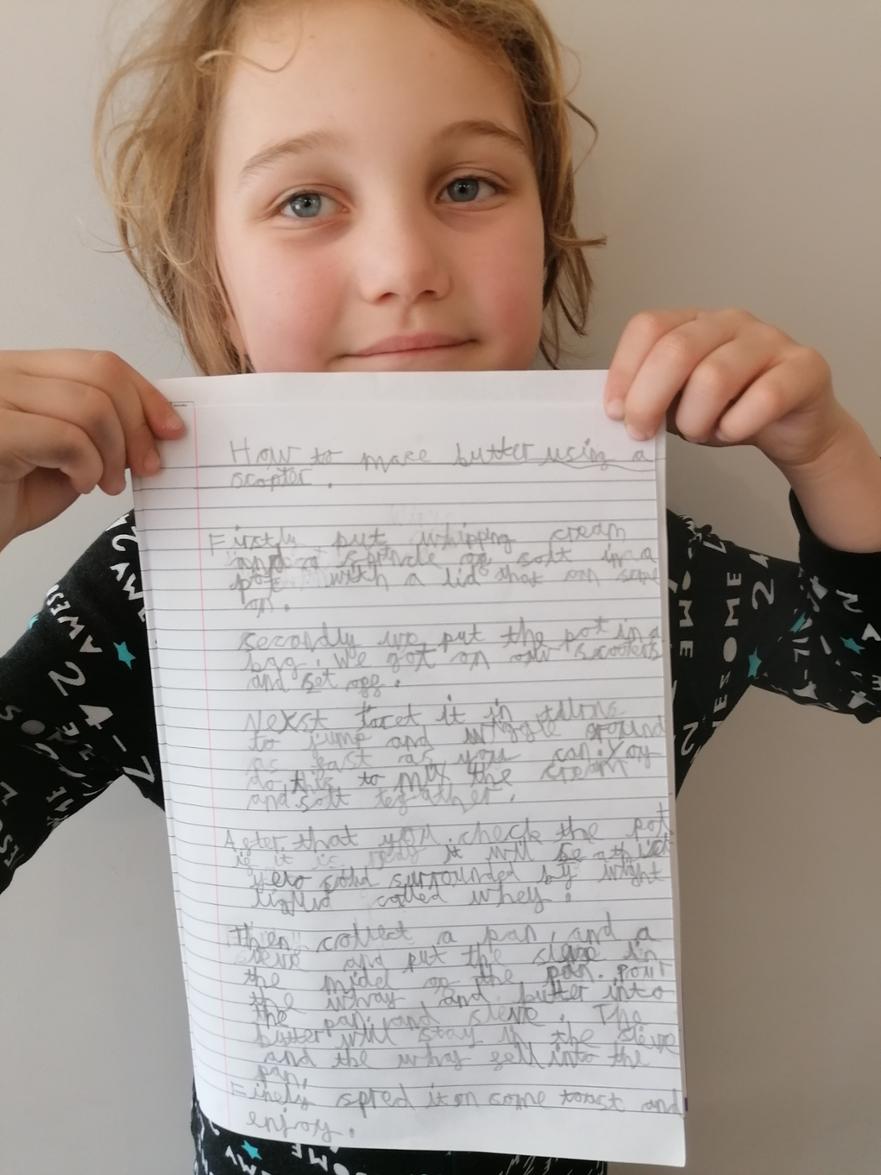 How to mace butter using a
scooter.
Firstly put whipping cream
and a sprincle of solt in a
pot with a lid that can
on.
secondly we put the pot in a
bag. We got on our scooters
and set off.
Next it in
to jump and wiggle around
as fast as you can. Yoy
do this to mix the cream
and solt tegather.
After that you check the pot
if it is redy it will be a thict
yelo solid surrounded by wight
liqid called whey.
Then collect a pan, and a
sieve and put the sieve in
the midel of the pan. pour
the whay and butter into
the pan and sieve. The
butter will stay in the sieve
and the whay fell into the
pan.
Finely spred it on some toast and
enjoy.
AWESOME
24-7